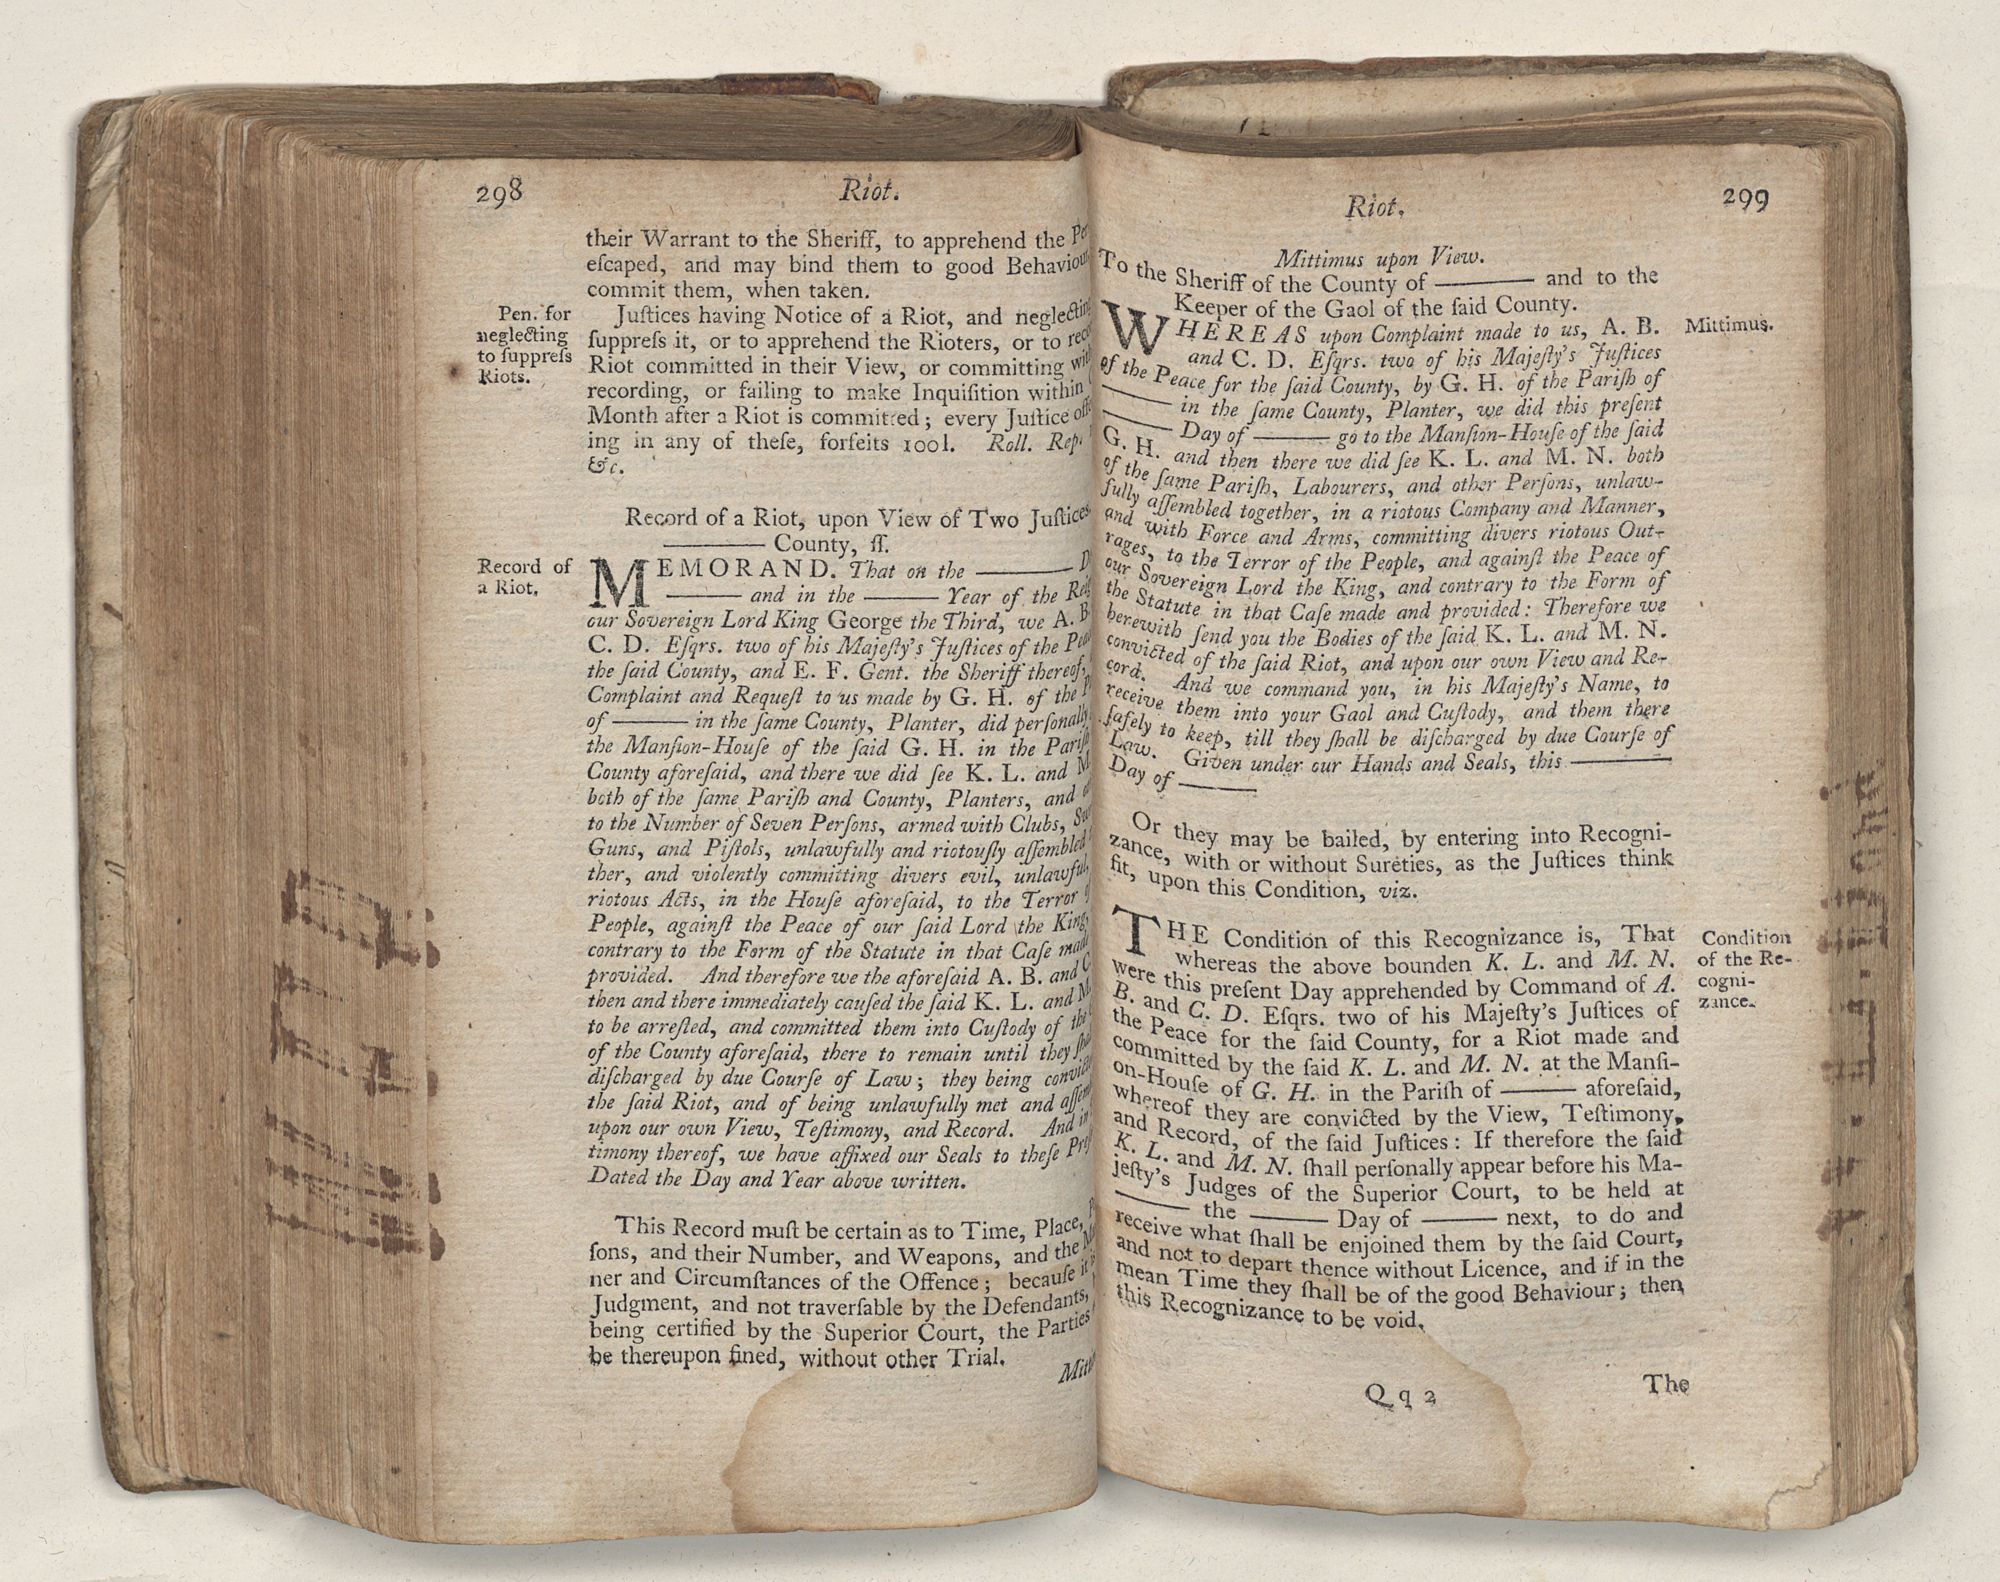 298
Riot.
their Warrant to the Sheriff, to apprehend the
eſcaped, and may bind them to good Behaviour
commit them, when taken.
Pen. for
neglecting
to ſuppreſs
Riots.
Juſtices having Notice of a Riot, and neglecting
ſuppreſs it, or to apprehend the Rioters, or to
Riot committed in their View, or committing
recording, or failing to make Inquiſition within
Month after a Riot is committed; every Juſtice
ing in any of theſe, forfeits 100l. Roll. Rep.
&c.
Record of a Riot, upon View of Two Juſtices.
——— County, ſſ.
Record of
a Riot.
MEMORAND. That on the ———
——— and in the ——— Year of the
our Sovereign Lord King George the Third, we A. B.
C. D. Eſqrs. two of his Majeſty's Juſtices of the
the ſaid County, and E. F. Gent. the Sheriff thereof,
Complaint and Requeſt to us made by G. H. of the
of ——— in the ſame County, Planter, did perſonally
the Manſion-Houſe of the ſaid G. H. in the Pariſh
County aforeſaid, and there we did ſee K. L. and M.
both of the ſame Pariſh and County, Planters, and
to the Number of Seven Perſons, armed with Clubs,
Guns, and Piſtols, unlawfully and riotouſly aſſembled
ther, and violently committing divers evil, unlawful,
riotous Acts, in the Houſe aforeſaid, to the Terror
People, againſt the Peace of our ſaid Lord the King,
contrary to the Form of the Statute in that Caſe made
provided. And therefore we the aforeſaid A. B. and C.
then and there immediately cauſed the ſaid K. L. and M.
to be arreſted, and committed them into Cuſtody of the
of the County aforeſaid, there to remain until they
diſcharged by due Courſe of Law; they being
the ſaid Riot, and of being unlawfully met and
upon our own View, Teſtimony, and Record. And in
timony thereof, we have affixed our Seals to theſe
Dated the Day and Year above written.
This Record muſt be certain as to Time, Place,
ſons, and their Number, and Weapons, and the
ner and Circumſtances of the Offence; becauſe it
Judgment, and not traverſable by the Defendants,
being certified by the Superior Court, the Parties
be thereupon fined, without other Trial.
299
Riot.
Mittimus upon View.
To the Sheriff of the County of ——— and to the
Keeper of the Gaol of the ſaid County.
Mittimus.
WHEREAS upon Complaint made to us, A. B.
and C. D. Eſqrs. two of his Majeſty's Juſtices
of the Peace for the ſaid County, by G. H. of the Pariſh of
——— in the ſame County, Planter, we did this preſent
——— Day of ——— go to the Manſion-Houſe of the ſaid
G. H. and then there we did ſee K. L. and M. N. both
of the ſame Pariſh, Labourers, and other Perſons, unlaw-
fully aſſembled together, in a riotous Company and Manner,
and with Force and Arms, committing divers riotous Out-
rages, to the Terror of the People, and againſt the Peace of
our Sovereign Lord the King, and contrary to the Form of
the Statute in that Caſe made and provided: Therefore we
herewith ſend you the Bodies of the ſaid K. L. and M. N.
convicted of the ſaid Riot, and upon our own View and Re-
cord. And we command you, in his Majeſty's Name, to
receive them into your Gaol and Cuſtody, and them there
ſafely to keep, till they ſhall be diſcharged by due Courſe of
Law. Given under our Hands and Seals, this ———
Day of ———
Or they may be bailed, by entering into Recogni-
zance, with or without Sureties, as the Juſtices think
fit, upon this Condition, viz.
Condition
of the Re-
cogni-
zance.
THE Condition of this Recognizance is, That
whereas the above bounden K. L. and M. N.
were this preſent Day apprehended by Command of A.
B. and C. D. Eſqrs. two of his Majeſty's Juſtices of
the Peace for the ſaid County, for a Riot made and
committed by the ſaid K. L. and M. N. at the Manſi-
on-Houſe of G. H. in the Pariſh of ——— aforeſaid,
whereof they are convicted by the View, Teſtimony,
and Record, of the ſaid Juſtices: If therefore the ſaid
K. L. and M. N. ſhall perſonally appear before his Ma-
jeſty's Judges of the Superior Court, to be held at
——— the ——— Day of ——— next, to do and
receive what ſhall be enjoined them by the ſaid Court,
and not to depart thence without Licence, and if in the
mean Time they ſhall be of the good Behaviour; then
this Recognizance to be void.
Q q 2
The